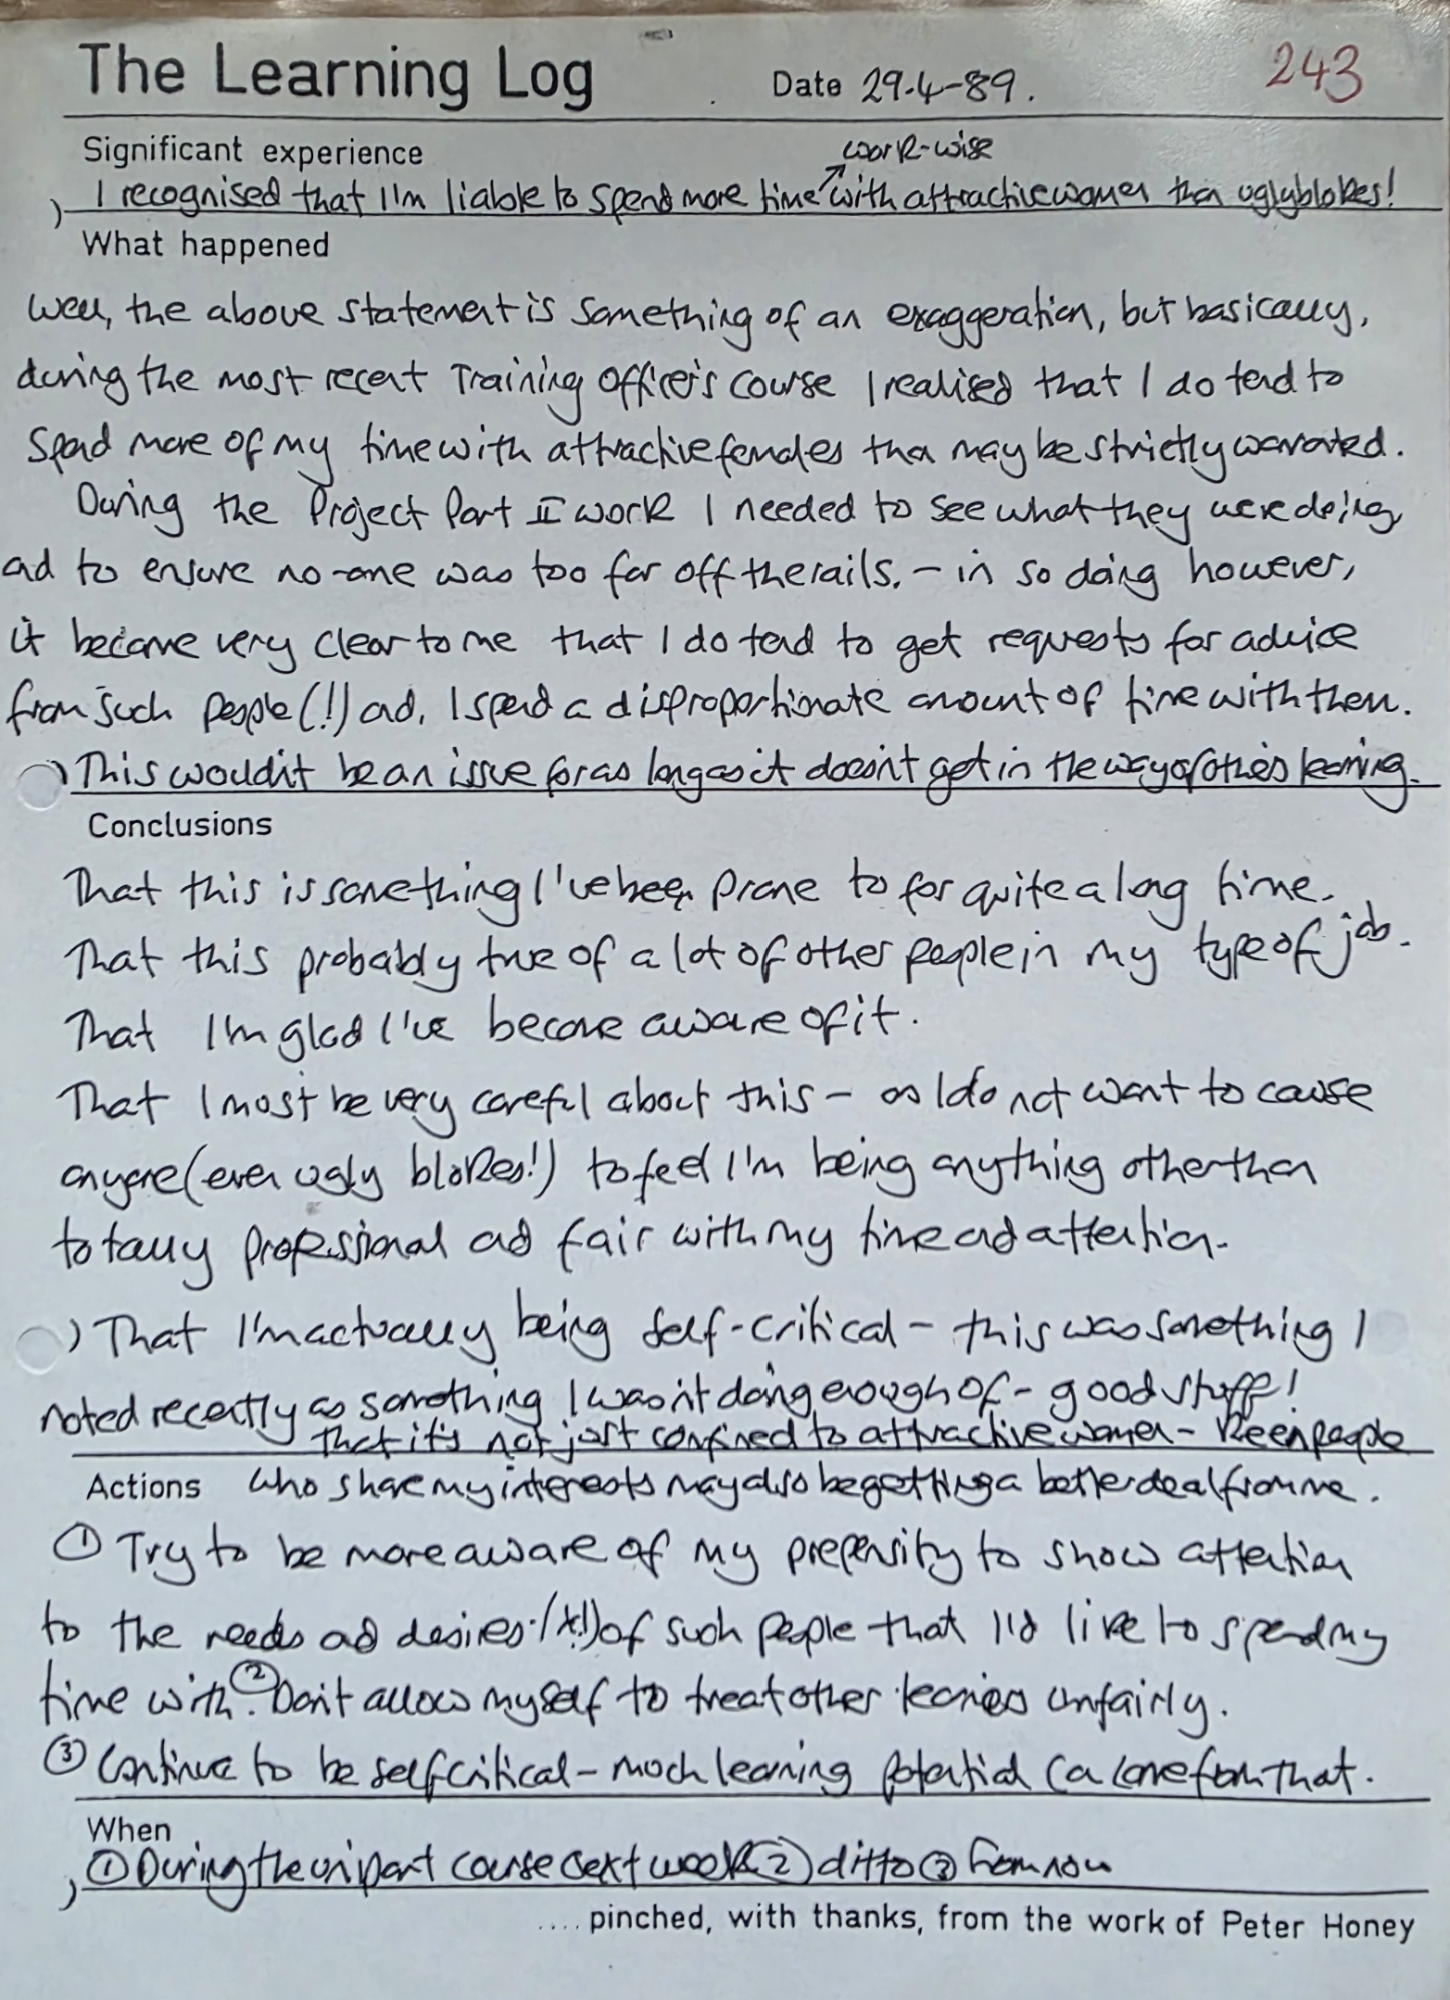 The Learning Log
Date 29.4-89.
243
Significant experience
work-wise
I recognised that I'm liable to spend more time with attractive women than ugly blokes!
What happened
Well, the above statement is something of an exaggeration, but basically,
during the most recent Training Officer's course I realised that I do tend to
spend more of my time with attractive females than may be strictly warranted.
During the Project Part II work I needed to see what they were doing
and to ensure no-one was too far off the rails. - in so doing however,
it became very clear to me that I do tend to get requests for advice
from such people (!) and, I spend a disproportionate amount of time with them.
This wouldn't be an issue for as long as it doesn't get in the way of others learning.
Conclusions
That this is something I've been prone to for quite a long time.
That this probably true of a lot of other people in my type of job.
That I'm glad I've become aware of it.
That I must be very careful about this - as I do not want to cause
anyone (even ugly blokes!) to feel I'm being anything other than
totally professional and fair with my time and attention.
That I'm actually being self-critical - this was something I
noted recently as something I wasn't doing enough of - good stuff!
That it's not just confined to attractive women - keen people
Actions who share my interests may also be getting a better deal from me.
① Try to be more aware of my propensity to show attention
to the needs and desires (!) of such people that I'd like to spend my
time with. ② Don't allow myself to treat other learners unfairly.
③ Continue to be self critical - much learning potential can come from that.
When
① During the course next week ② ditto ③ from now
.... pinched, with thanks, from the work of Peter Honey